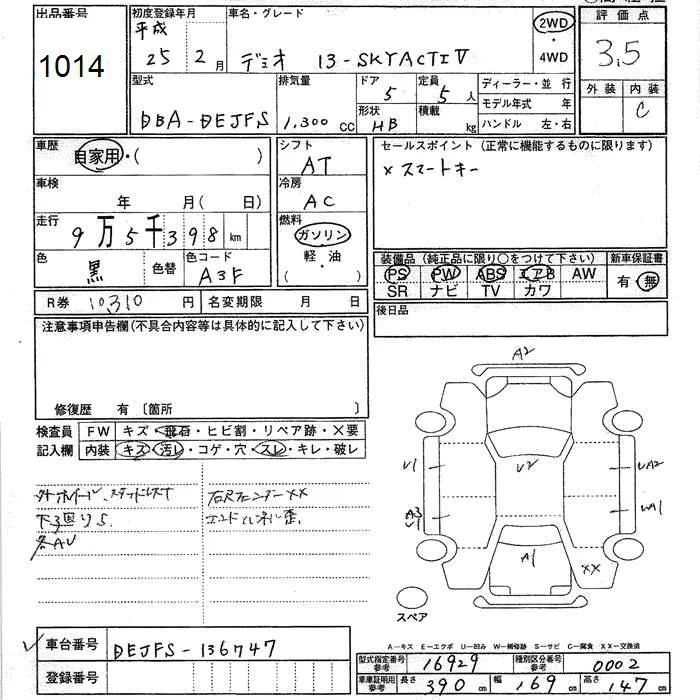 出品番号
1014
初度登録年月
平成
25 2月
車名・グレード
デミオ 13-SKYACTIV
2WD
・
4WD
評価点
3.5
外装 内装
C
型式
DBA-DEJFS
排気量
1,300 CC
ドア
5
形状
HB
定員
5人
積載
kg
ディーラー・並 行
モデル年式 年
ハンドル 左・右
車歴
自家用・( )
車検
年 月( 日)
走行
9万5千398 km
色
黒
色替
色コード
A3F
シフト
AT
冷房
AC
燃料
ガソリン
軽・油
( )
セールスポイント (正常に機能するものに限ります)
×スマートキー
装備品 (純正品に限り○をつけて下さい)
PS PW ABS エアB AW
SR ナビ TV カワ
新車保証書
有・無
R券 10,310 円
名変期限 月 日
後日品
注意事項申告欄(不具合内容等は具体的に記入して下さい)
修復歴 有 〔箇所 〕
検査員
記入欄
FW キズ・飛石・ヒビ割・リペア跡・×要
内装 キズ・汚レ・コゲ・穴・スレ・キレ・破レ
外ホイール、スタッドレスT
下廻りS
各AU
右Rフェンダー××
エンドパネル歪
A2
U1
U2
UA2
A3
U1
WA1
A1
××
スペア
A-キズ E-エクボ U-凹み W-補修跡 S-サビ C-腐食 XX-交換済
車台番号
DEJFS-136747
登録番号
型式指定番号
参考
16929
種別区分番号
参考
0002
車庫証明用
参考
長さ 390 cm
幅 169 cm
高さ 147 cm